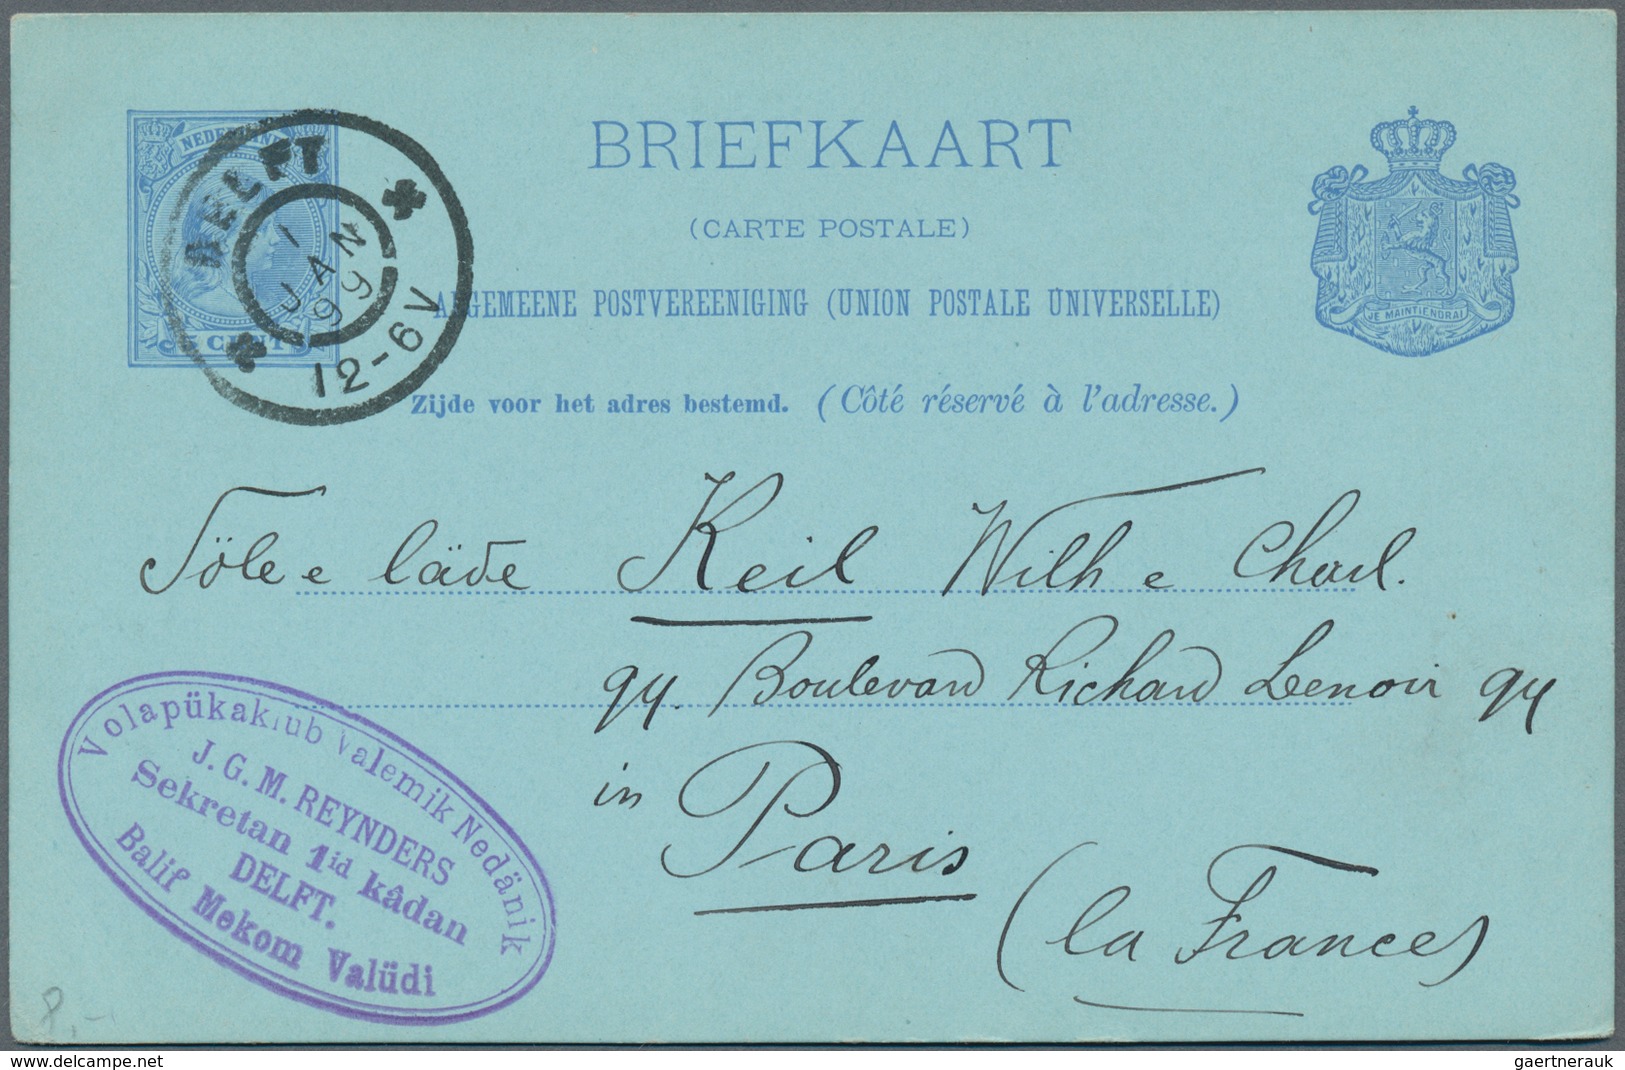 BRIEFKAART
(CARTE POSTALE)
ALGEMEENE POSTVEREENIGING (UNION POSTALE UNIVERSELLE)
Zijde voor het adres bestemd. (Côté réservé à l'adresse.)
NEDERLAND
CENT
DELFT
1
JAN
99
12-6V
JE MAINTIENDRAI
Söle e läde Keil Wilh e Charl.
94. Boulevard Richard Lenoir 94
in Paris
(la France)
Volapükaklub Valemik Nedänik
J. G. M. REYNDERS
Sekretan 1id kâdan
DELFT.
Balif Mekom Valüdi
8.-
www.delcampe.net
gaertnerauk